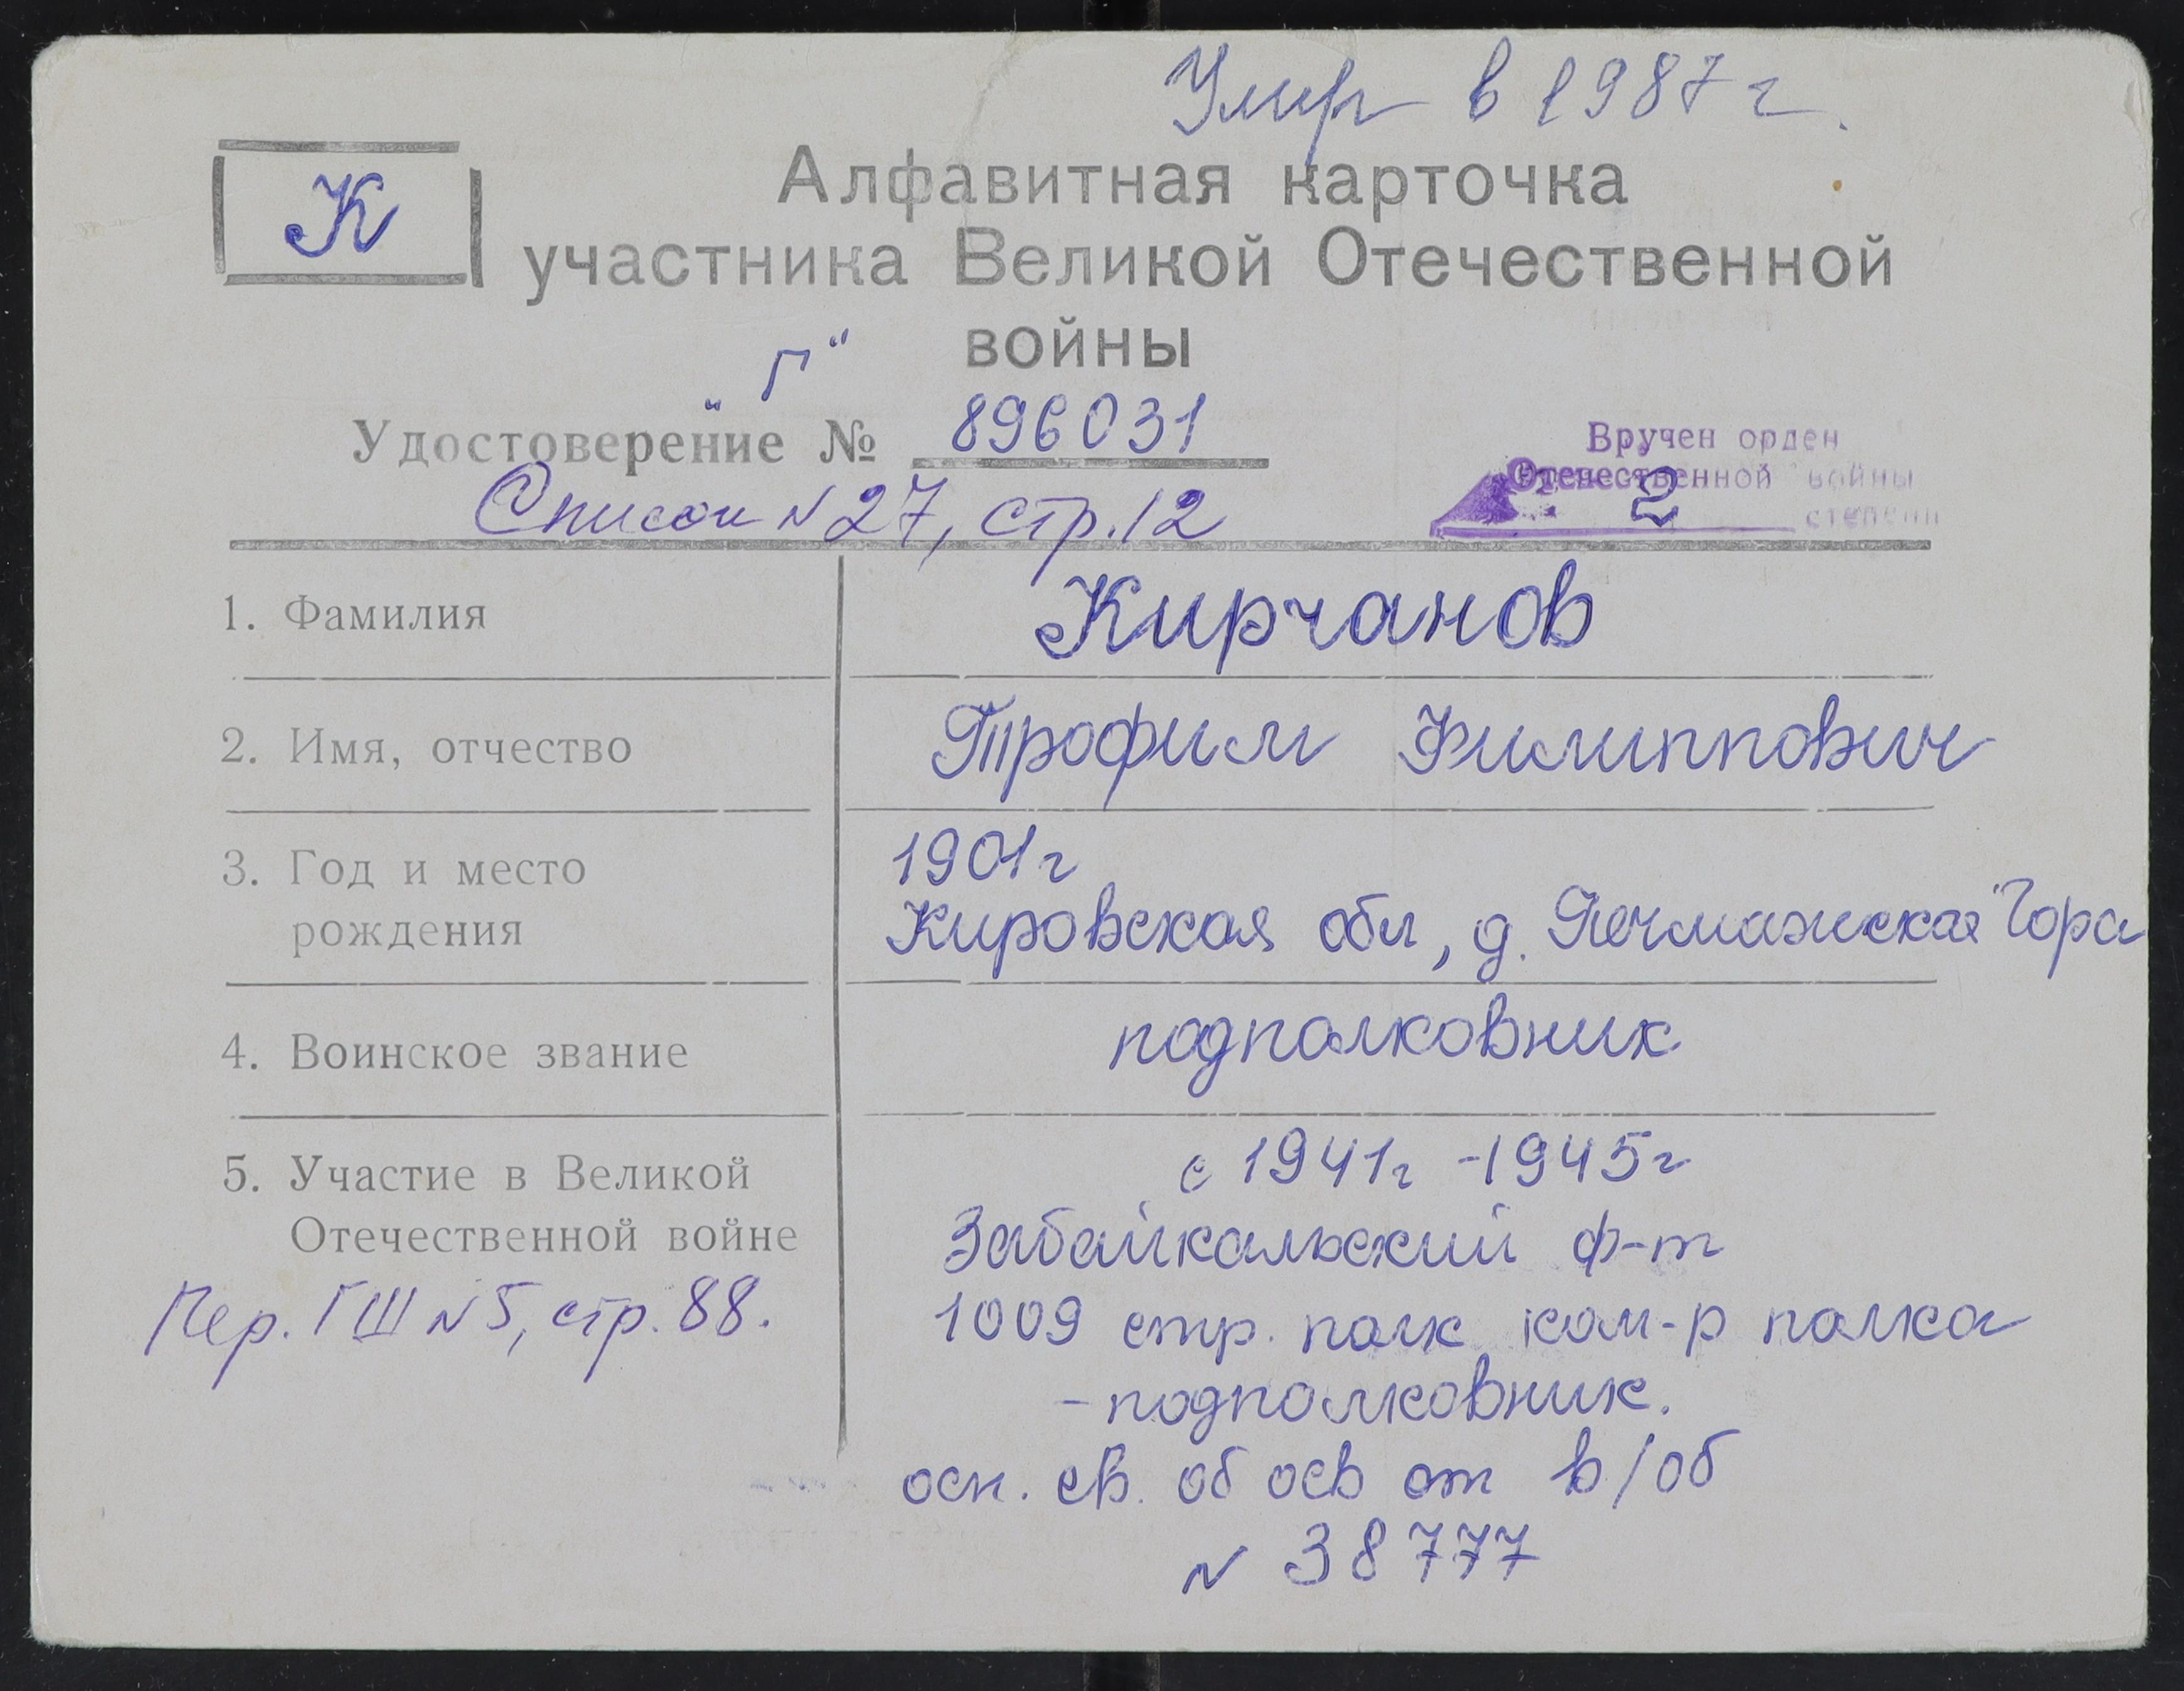 Умер в 1987 г.
К
Алфавитная карточка
участника Великой Отечественной
войны
"Г"
Удостоверение № 896031
Вручен орден
Отечественной войны
2 степени
Список N 27, стр. 12
1. Фамилия Кирчанов
2. Имя, отчество Трофим Филиппович
3. Год и место 1901г
рождения Кировская обл, д. Гора
4. Воинское звание подполковник
5. Участие в Великой с 1941г -1945г
Отечественной войне Забайкальский ф-т
Пер. ГШ N 5, стр. 88. 1009 стр. полк ком-р полка
-подполковник.
осн. св. об осв от в/об
N 38777